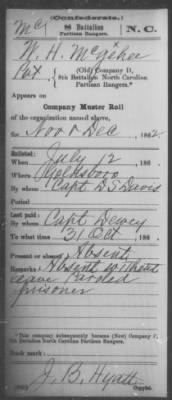 (Confederate.)
Mc 8 Battalion N. C.
Partisan Rangers.
W. H. McGehee
Pvt, (Old) Company D,
8th Battalion North Carolina
Partisan Rangers.*
Appears on
Company Muster Roll
of the organization named above,
for Nov & Dec, 1862.
Enlisted:
When July 12, 186 .
Where Goldsboro
By whom Capt D S Davis
Period
Last paid:
By whom Capt Dewey
To what time 31 Oct, 186 .
Present or absent Absent
Remarks: Absent without
leave Paroled
prisoner
*This company subsequently became (New) Company
North Carolina Partisan Rangers.
Book mark:
J. B. Hyatt